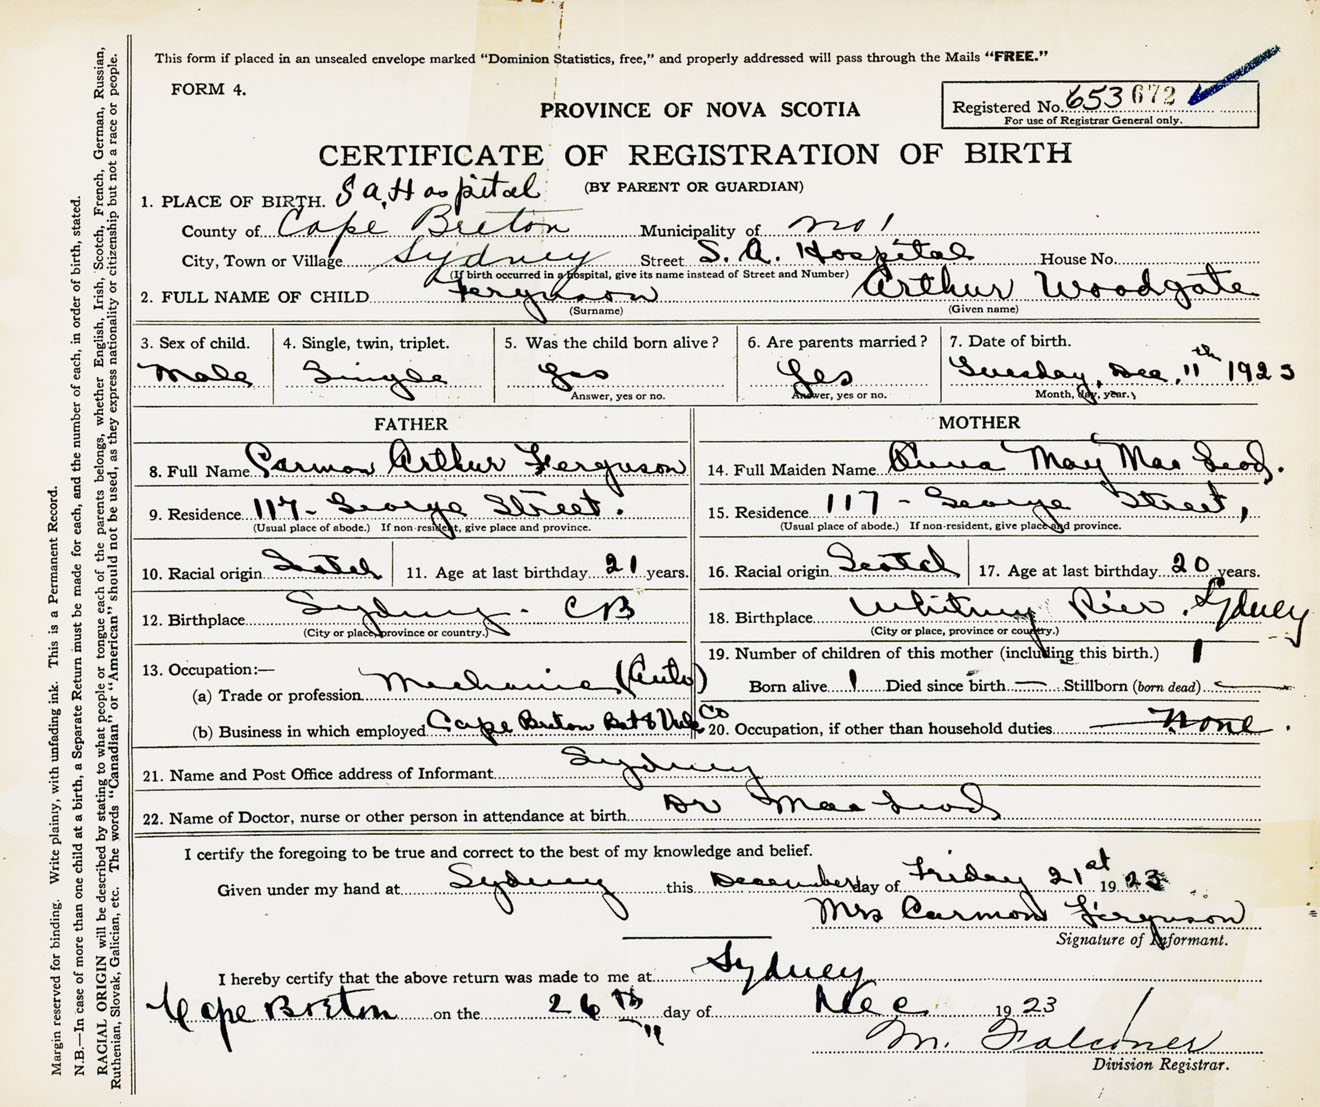 This form if placed in an unsealed envelope marked "Dominion Statistics, free," and properly addressed will pass through the Mails "FREE."
FORM 4.
Registered No. 653 672
For use of Registrar General only.
PROVINCE OF NOVA SCOTIA
CERTIFICATE OF REGISTRATION OF BIRTH
(BY PARENT OR GUARDIAN)
1. PLACE OF BIRTH. S a. Hospital
County of Cape Breton Municipality of no 1
City, Town or Village Sydney Street S. A. Hospital House No.
(If birth occurred in a hospital, give its name instead of Street and Number)
2. FULL NAME OF CHILD Ferguson Arthur Woodgate
(Surname) (Given name)
3. Sex of child. 4. Single, twin, triplet. 5. Was the child born alive? 6. Are parents married? 7. Date of birth.
Male Single Yes Yes Tuesday, Dec. 11th 1923
Answer, yes or no. Answer, yes or no. Month, day, year.
FATHER MOTHER
8. Full Name Carmon Arthur Ferguson 14. Full Maiden Name Anna May Mac Leod.
9. Residence 117- George Street. 15. Residence 117 - George Street,
(Usual place of abode.) If non-resident, give place and province. (Usual place of abode.) If non-resident, give place and province.
10. Racial origin Scotch 11. Age at last birthday 21 years. 16. Racial origin Scotch 17. Age at last birthday 20 years.
12. Birthplace Sydney - CB 18. Birthplace Whitney Pier. Sydney
(City or place, province or country.) (City or place, province or country.)
13. Occupation:— 19. Number of children of this mother (including this birth.) 1
(a) Trade or profession Mechanic (Auto) Born alive 1 Died since birth — Stillborn (born dead) —
(b) Business in which employed Cape Breton Bat & Vulc Co 20. Occupation, if other than household duties None.
21. Name and Post Office address of Informant Sydney
22. Name of Doctor, nurse or other person in attendance at birth Dr Mac Leod
I certify the foregoing to be true and correct to the best of my knowledge and belief.
Given under my hand at Sydney this December day of Friday 21st 1923
Mrs Carmon Ferguson
Signature of Informant.
I hereby certify that the above return was made to me at Sydney
Cape Breton on the 26th day of Dec 1923
M. Falconer
Division Registrar.
Margin reserved for binding. Write plainly, with unfading ink. This is a Permanent Record.
N.B.—In case of more than one child at a birth, a Separate Return must be made for each, and the number of each, in order of birth, stated.
RACIAL ORIGIN will be described by stating to what people or tongue each of the parents belongs, whether English, Irish, Scotch, French, German, Russian,
Ruthenian, Slovak, Galician, etc. The words "Canadian" or "American" should not be used, as they express nationality or citizenship but not a race or people.